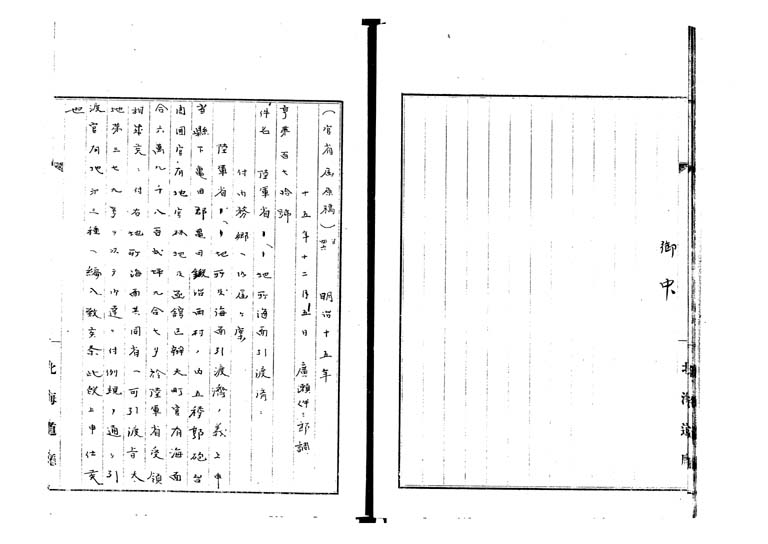 御中
北海道廳
(官省届原稿) 明治十五年
十五年十二月五日 廣瀬 郎調
第百七拾號
件名 陸軍省ヘ地所海面引渡済
付内務卿ヘ御届ノ案
陸軍省ヘ地所及海面引渡濟ノ義上申
當縣下亀田郡亀田鍛冶両村ノ内五稜郭砲台
周囲官有地官林地及函館區辨天町官有海面
合六萬九千八百 坪九合七勺於陸軍省受領
相成度ニ付右地所海面共同省ヘ可引渡旨
地第三七九号ヲ以テ御達ニ付例規ノ通リ引
渡官有地第二種ヘ編入致候条此段上申仕候
也
北海道廳